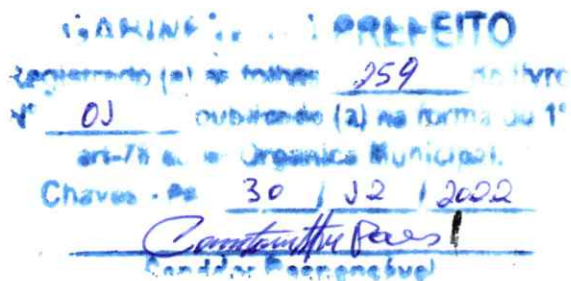 GABINETE DO PREFEITO
Registrado (a) as folhas 259 do livro
Nº 01 publicando (a) na forma du 1º
art-78 Organica Municipal.
Chaves - Pa 30 / 12 / 2022
Paes
Servidor Responsável